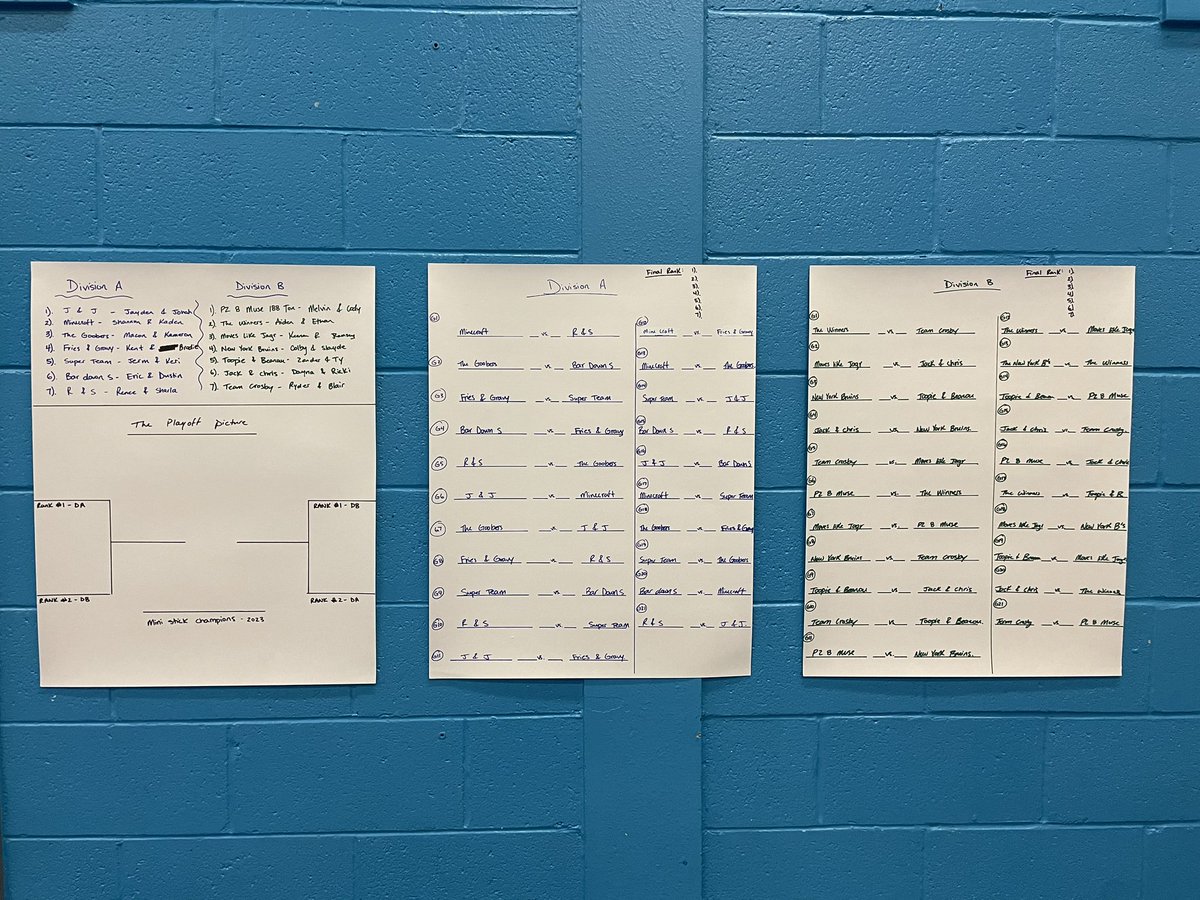 Division A
1). J & J - Jayden & Jonah
2). Minecraft - Shannon & Kaden
3). The Goobers - Macon & Kameron
4). Fries & Gravy - Kent & Brodie
5). Super Team - Jerm & Keri
6). Bar downs - Eric & Dustin
7). R & S - Renee & Sharla
Division B
1). PZ B Muse 188 Ton - Melvin & Cody
2). The Winners - Aiden & Ethan
3). Moves Like Jagr - & Ramsey
4). New York Bruins - Colby & Slayde
5). Toopie & Beanou - Zander & Ty
6). Jack & chris - Dayna & Ricki
7). Team Crosby - Ryder & Blair
The Playoff Picture
RANK #1 - DA
RANK #2 - DB
RANK #1 - DB
RANK #2 - DA
Mini stick champions - 2023
Division A
Final Rank: 1).
2).
3).
4).
5).
6).
7).
G1 Minecraft vs. R & S
G2 The Goobers vs. Bar Downs
G3 Fries & Gravy vs. Super Team
G4 Bar Downs vs. Fries & Gravy
G5 R & S vs. The Goobers
G6 J & J vs. Minecraft
G7 The Goobers vs. J & J
G8 Fries & Gravy vs. R & S
G9 Super Team vs. Bar Downs
G10 R & S vs. Super Team
G11 J & J vs. Fries & Gravy
G12 Minecraft vs. Fries & Gravy
G13 Minecraft vs. the Goobers
G14 Super Team vs. J & J
G15 Bar Downs vs. R & S
G16 J & J vs. Bar Downs
G17 Minecraft vs. Super Team
G18 The Goobers vs. Fries & Gravy
G19 Super Team vs. The Goobers
G20 Bar downs vs. Minecraft
G21 R & S vs. J & J
Division B
Final Rank: 1).
2).
3).
4).
5).
6).
7).
G1 The Winners vs. Team Crosby
G2 Moves like Jagr vs. Jack & chris
G3 New York Bruins vs. Toopie & Beanou
G4 Jack & chris vs. New York Bruins.
G5 Team Crosby vs. Moves like Jagr
G6 PZ B Muse vs. The Winners
G7 Moves like Jagr vs. PZ B Muse
G8 New York Bruins vs. Team Crosby
G9 Toopie & Beanou vs. Jack & chris
G10 Team Crosby vs. Toopie & Beanou
G11 PZ B Muse vs. New York Bruins.
G12 The Winners vs. Moves like Jagr
G13 The New York B's vs. The Winners
G14 Toopie & Beanou vs. PZ B Muse
G15 Jack & chris vs. Team Crosby.
G16 PZ B Muse vs. Jack & chris
G17 The Winners vs. Toopie & B.
G18 Moves like Jagr vs. New York B's
G19 Toopie & Beanou vs. Moves like Jagr
G20 Jack & chris vs. The Winners
G21 Team Crosby vs. PZ B Muse